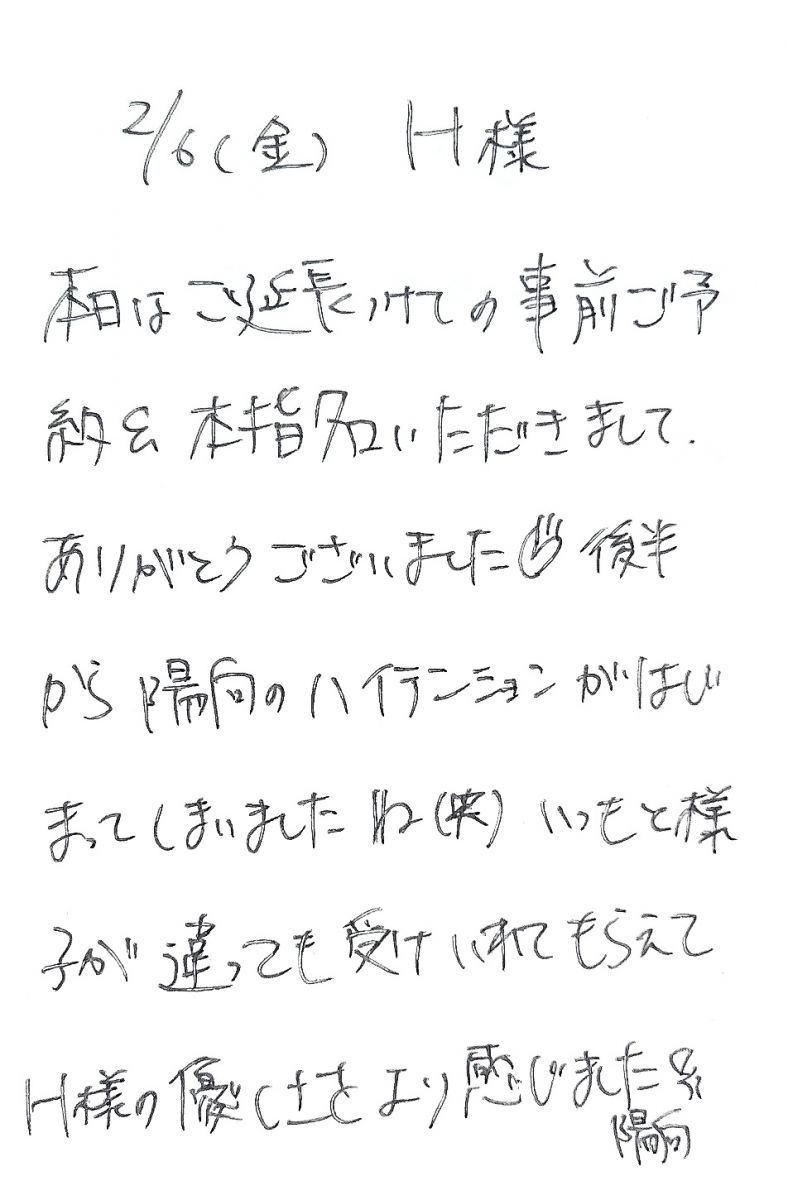 2/6(金) H様
本日はご延長つけての事前ご予
約&本指名いただきまして、
ありがとうございました 後半
から陽向のハイテンションがはじ
まってしまいましたね(笑) いつもと様
子が違っても受けいれてもらえて
H様の優しさをより感じました
陽向